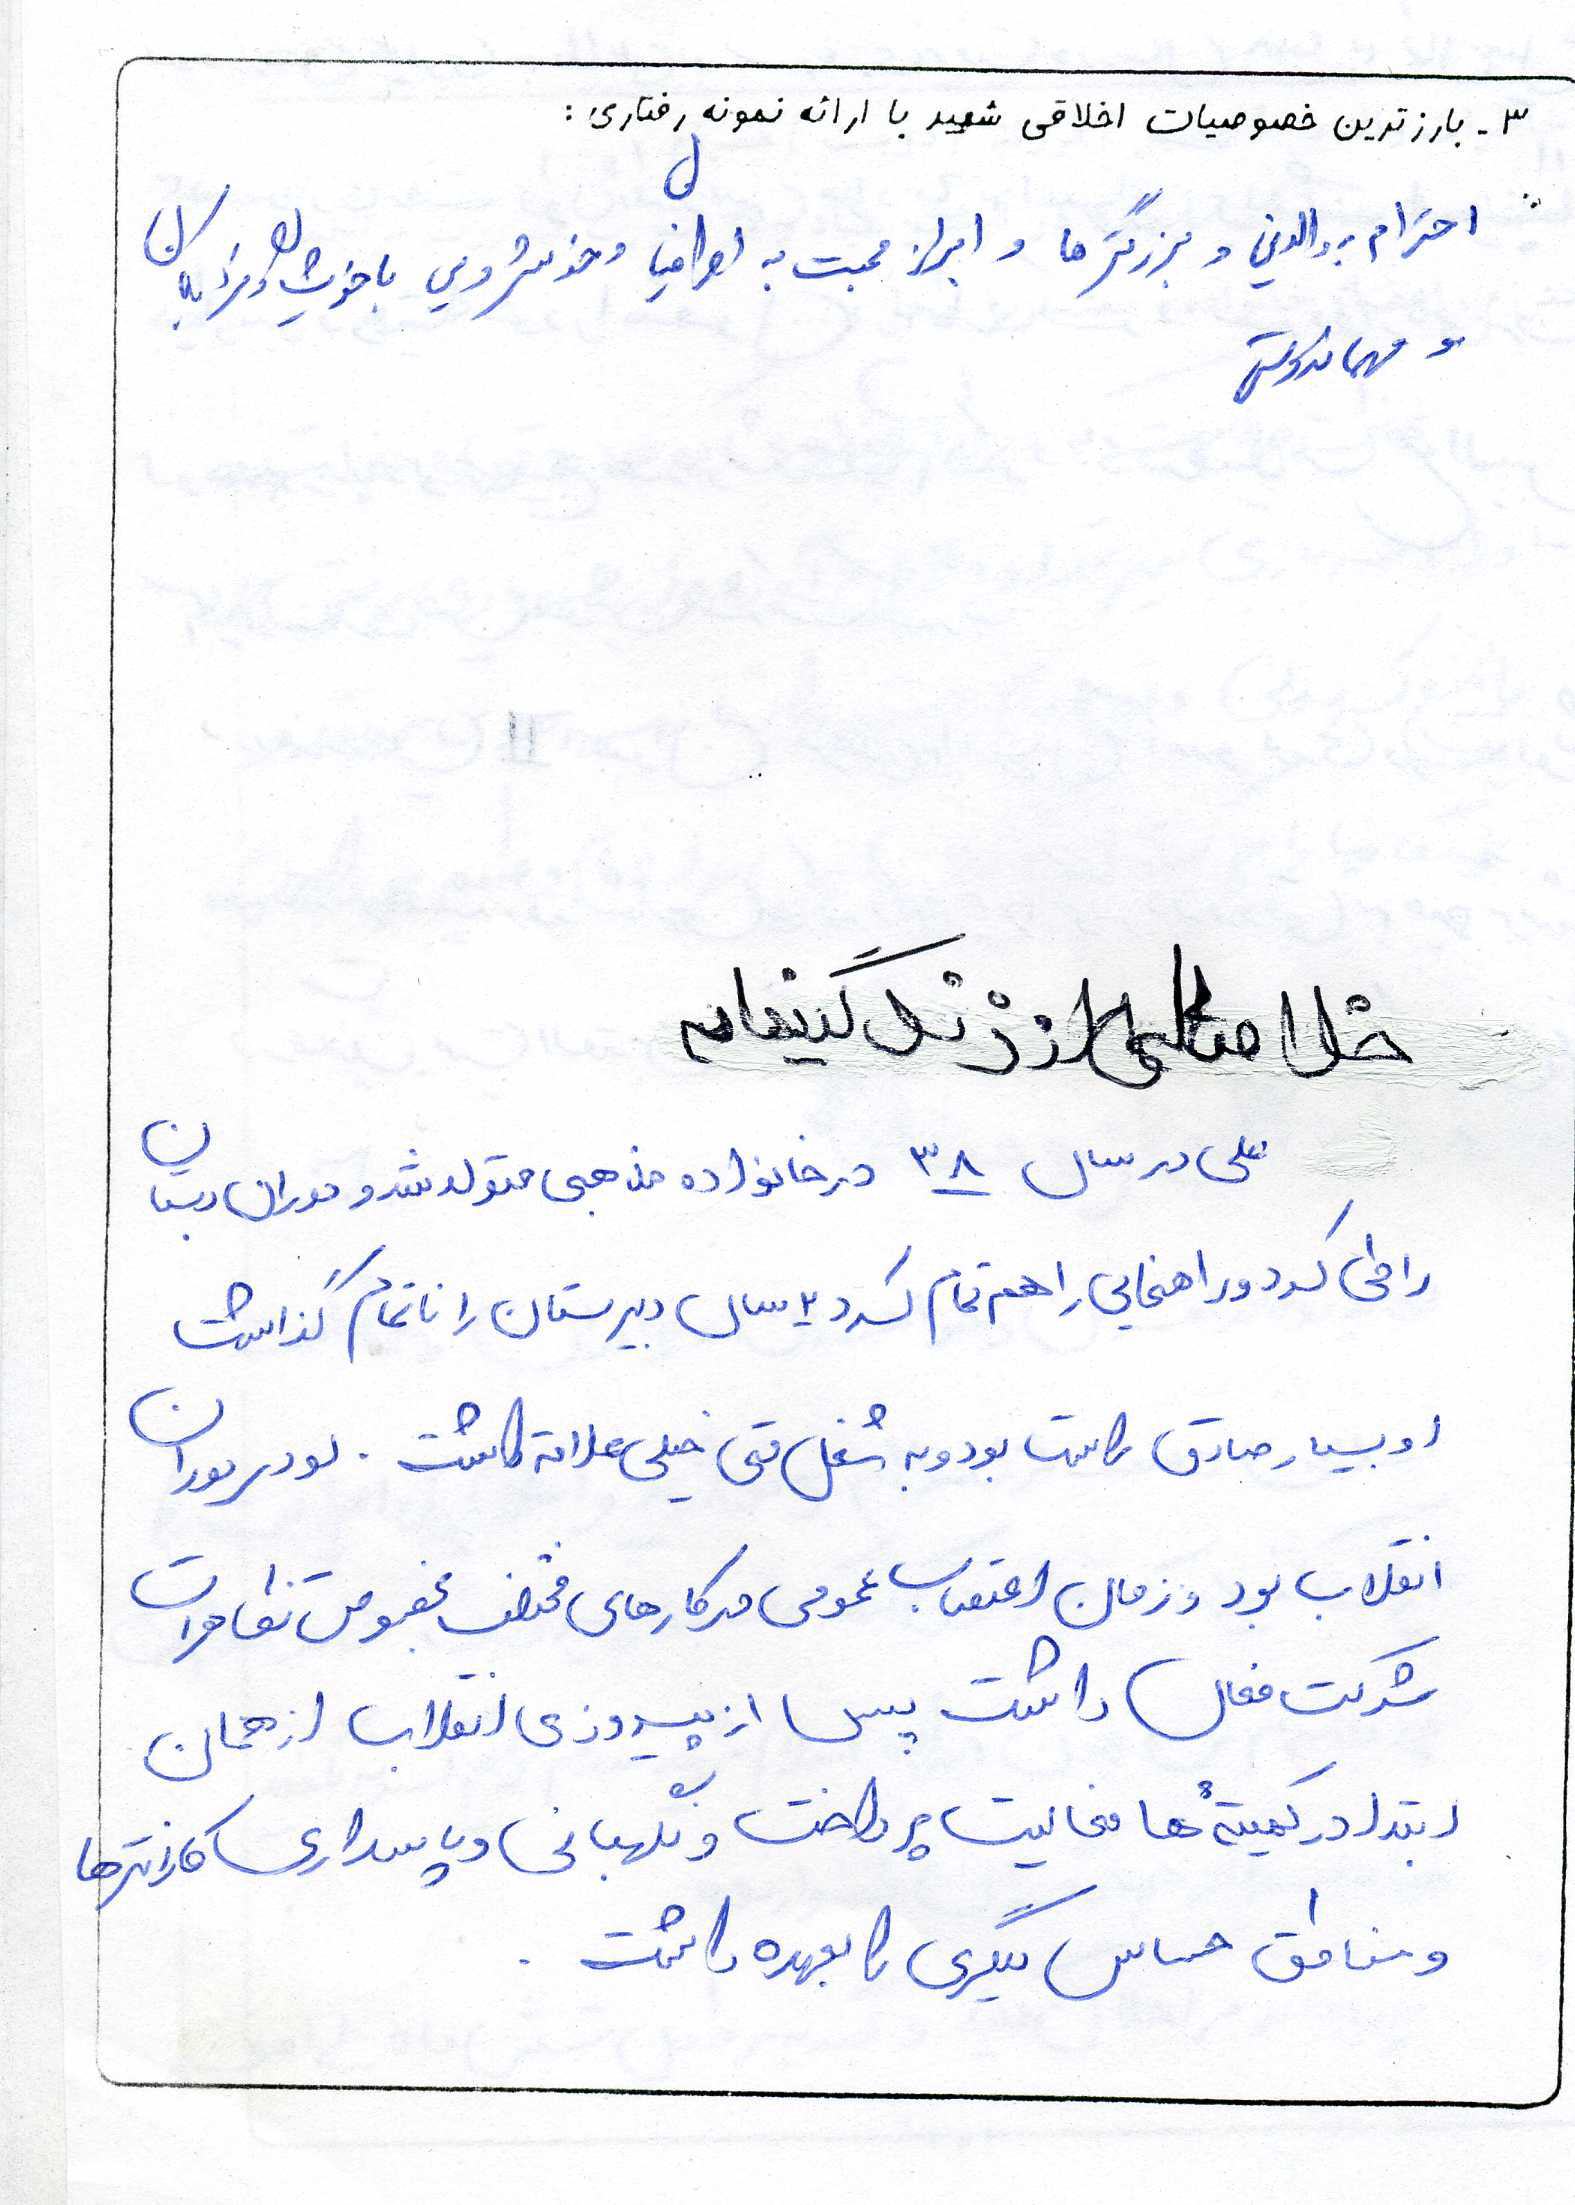 ۳- بارزترین خصوصیات اخلاقی شهید با ارائه نمونه رفتاری:
احترام به والدین و بزرگترها و ابراز محبت به اطرافیان و خوشرویی با خویشان و نزدیکان
و مهماندوستی
خلاصه‌ای از زندگینامه
علی در سال ۳۸ در خانواده مذهبی متولد شد و دوران دبستان
را طی کرد و راهنمایی را هم تمام کرد ۲ سال دبیرستان را ناتمام گذاشت
او بسیار صادق راست بود و به شغل فنی خیلی علاقه داشت. او در دوران
انقلاب بود و زمان اعتصاب عمومی در کارهای مختلف بخصوص تظاهرات
شرکت فعال داشت پس از پیروزی انقلاب از همان
ابتدا در کمیته ها فعالیت پرداخت و نگهبانی و پاسداری کلانتریها
و مناطق حساس دیگری را بعهده داشت.